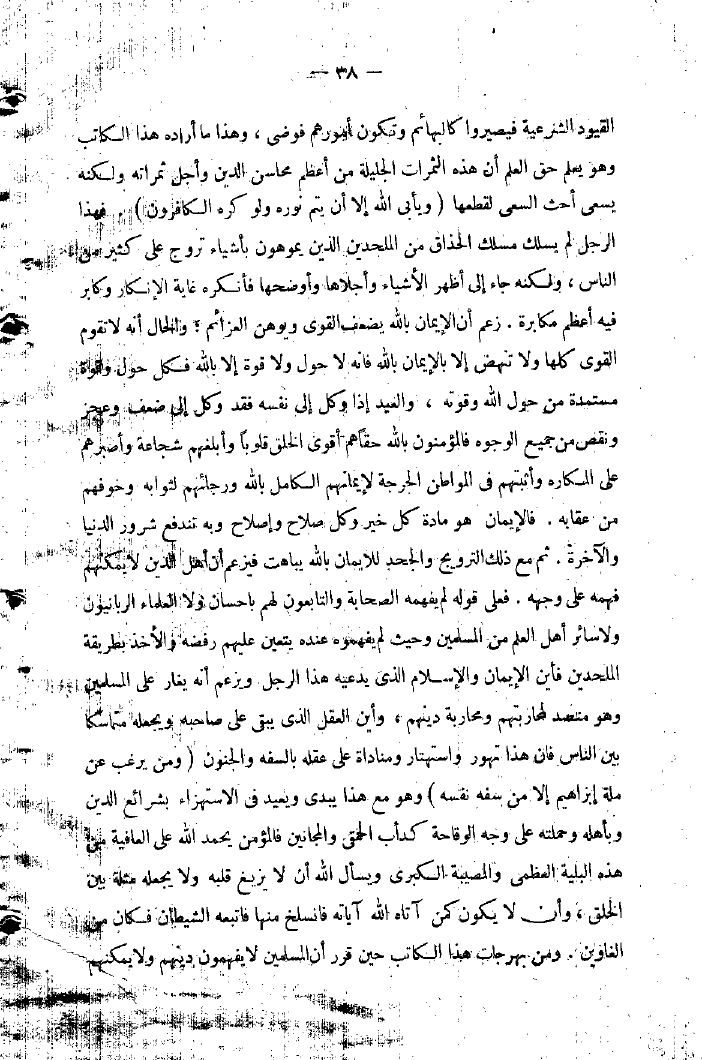 — ٣٨ —
القيود الشرعية فيصيروا كالبهائم وتكون أمورهم فوضى ، وهذا ما أراده هذا الكاتب
وهو يعلم حق العلم أن هذه الثمرات الجليلة من أعظم محاسن الدين وأجل ثمراته ولكنه
يسعى أحث السعى لقطعها ( ويأبى الله إلا أن يتم نوره ولو كره الكافرون ) . فهذا
الرجل لم يسلك مسلك الحذاق من الملحدين الذين يموهون بأشياء تروج على كثير من
الناس ، ولكنه جاء إلى أظهر الأشياء وأجلاها وأوضحها فأنكره غاية الإنكار وكابر
فيه أعظم مكابرة . زعم أن الإيمان بالله يضعف القوى ويوهن العزائم ؛ والحال أنه لا تقوم
القوى كلها ولا تنهض إلا بالإيمان بالله فانه لا حول ولا قوة إلا بالله فكل حول وقوة
مستمدة من حول الله وقوته ، والعبد إذا وكل إلى نفسه فقد وكل إلى ضعف وعجز
ونقص من جميع الوجوه فالمؤمنون بالله حقاً هم أقوى الخلق قلوباً وأبلغهم شجاعة وأصبرهم
على المكاره وأثبتهم فى المواطن الحرجة لإيمانهم الكامل بالله ورجائهم لثوابه وخوفهم
من عقابه . فالإيمان هو مادة كل خير وكل صلاح وإصلاح وبه تندفع شرور الدنيا
والآخرة . ثم مع ذلك الترويج والجحد للايمان بالله يباهت فيزعم أن أهل الدين لا يمكنهم
فهمه على وجهه . فعلى قوله لم يفهمه الصحابة والتابعون لهم باحسان ولا العلماء الربانيون
ولا سائر أهل العلم من المسلمين وحيث لم يفهموه عنده يتعين عليهم رفضه والأخذ بطريقة
الملحدين فأين الإيمان والإسلام الذى يدعيه هذا الرجل ويزعم أنه يغار على المسلمين
وهو متصد لمحاربتهم ومحاربة دينهم ، وأين العقل الذى يبقى على صاحبه ويجعله متماسكا
بين الناس فان هذا تهور واستهتار ومناداة على عقله بالسفه والجنون ( ومن يرغب عن
ملة إبراهيم إلا من سفه نفسه ) وهو مع هذا يبدى ويعيد فى الاستهزاء بشرائع الدين
وبأهله وحملته على وجه الوقاحة كدأب الحمقى والمجانين فالمؤمن يحمد الله على العافية من
هذه البلية العظمى والمصيبة الكبرى ويسأل الله أن لا يزيغ قلبه ولا يجعله مثلة بين
الخلق ، وأن لا يكون كمن آتاه الله آياته فانسلخ منها فاتبعه الشيطان فكان من
الغاوين . ومن بهرجات هذا الكاتب حين قرر أن المسلمين لا يفهمون دينهم ولا يمكنهم